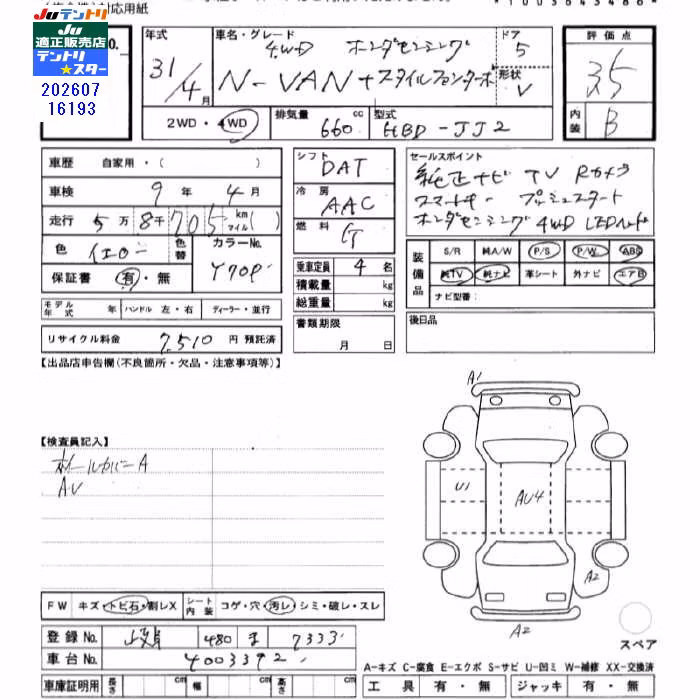 対応用紙
*1003643486*
JUテントリ
JU
適正販売店
テントリ
★スター
202607
16193
年式
31/4月
車名・グレード
4WD ホンダセンシング
N-VAN +スタイルファンターボ
ドア
5
形状
V
評価点
3.5
内装
B
2WD・4WD
排気量
660 cc
型式
HBD-JJ2
車歴 自家用・( )
車検 9年 4月
走行 5万8千705km マイル( )
色 イエロー
色替
カラーNo.
Y70P
保証書 有・無
モデル年式 年 ハンドル 左・右 ディーラー・並行
リサイクル料金 7,510 円 預託済
シフト
DAT
冷房
AAC
燃料
G
乗車定員 4 名
積載量 kg
総重量 kg
書類期限
月 日
セールスポイント
純正ナビ TV Rカメラ
スマートキー プッシュスタート
ホンダセンシング 4WD LEDヘッド
装備品
S/R 純A/W P/S P/W ABS
純TV 純ナビ 革シート 外ナビ エアB
ナビ型番:
後日品
【出品店申告欄(不良箇所・欠品・注意事項等)】
【検査員記入】
ホイールカバーA
AU
A1
U1
AU4
A2
A2
スペア
FW キズ・トビ石・割レX
シート内装 コゲ・穴・汚レ・シミ・破レ・スレ
登録No. 480 7333
車台No. 4003392
車庫証明用 長さ cm 幅 cm 高さ cm
A-キズ C-腐食 E-エクボ S-サビ U-凹ミ W-補修 XX-交換済
工具 有・無 ジャッキ 有・無